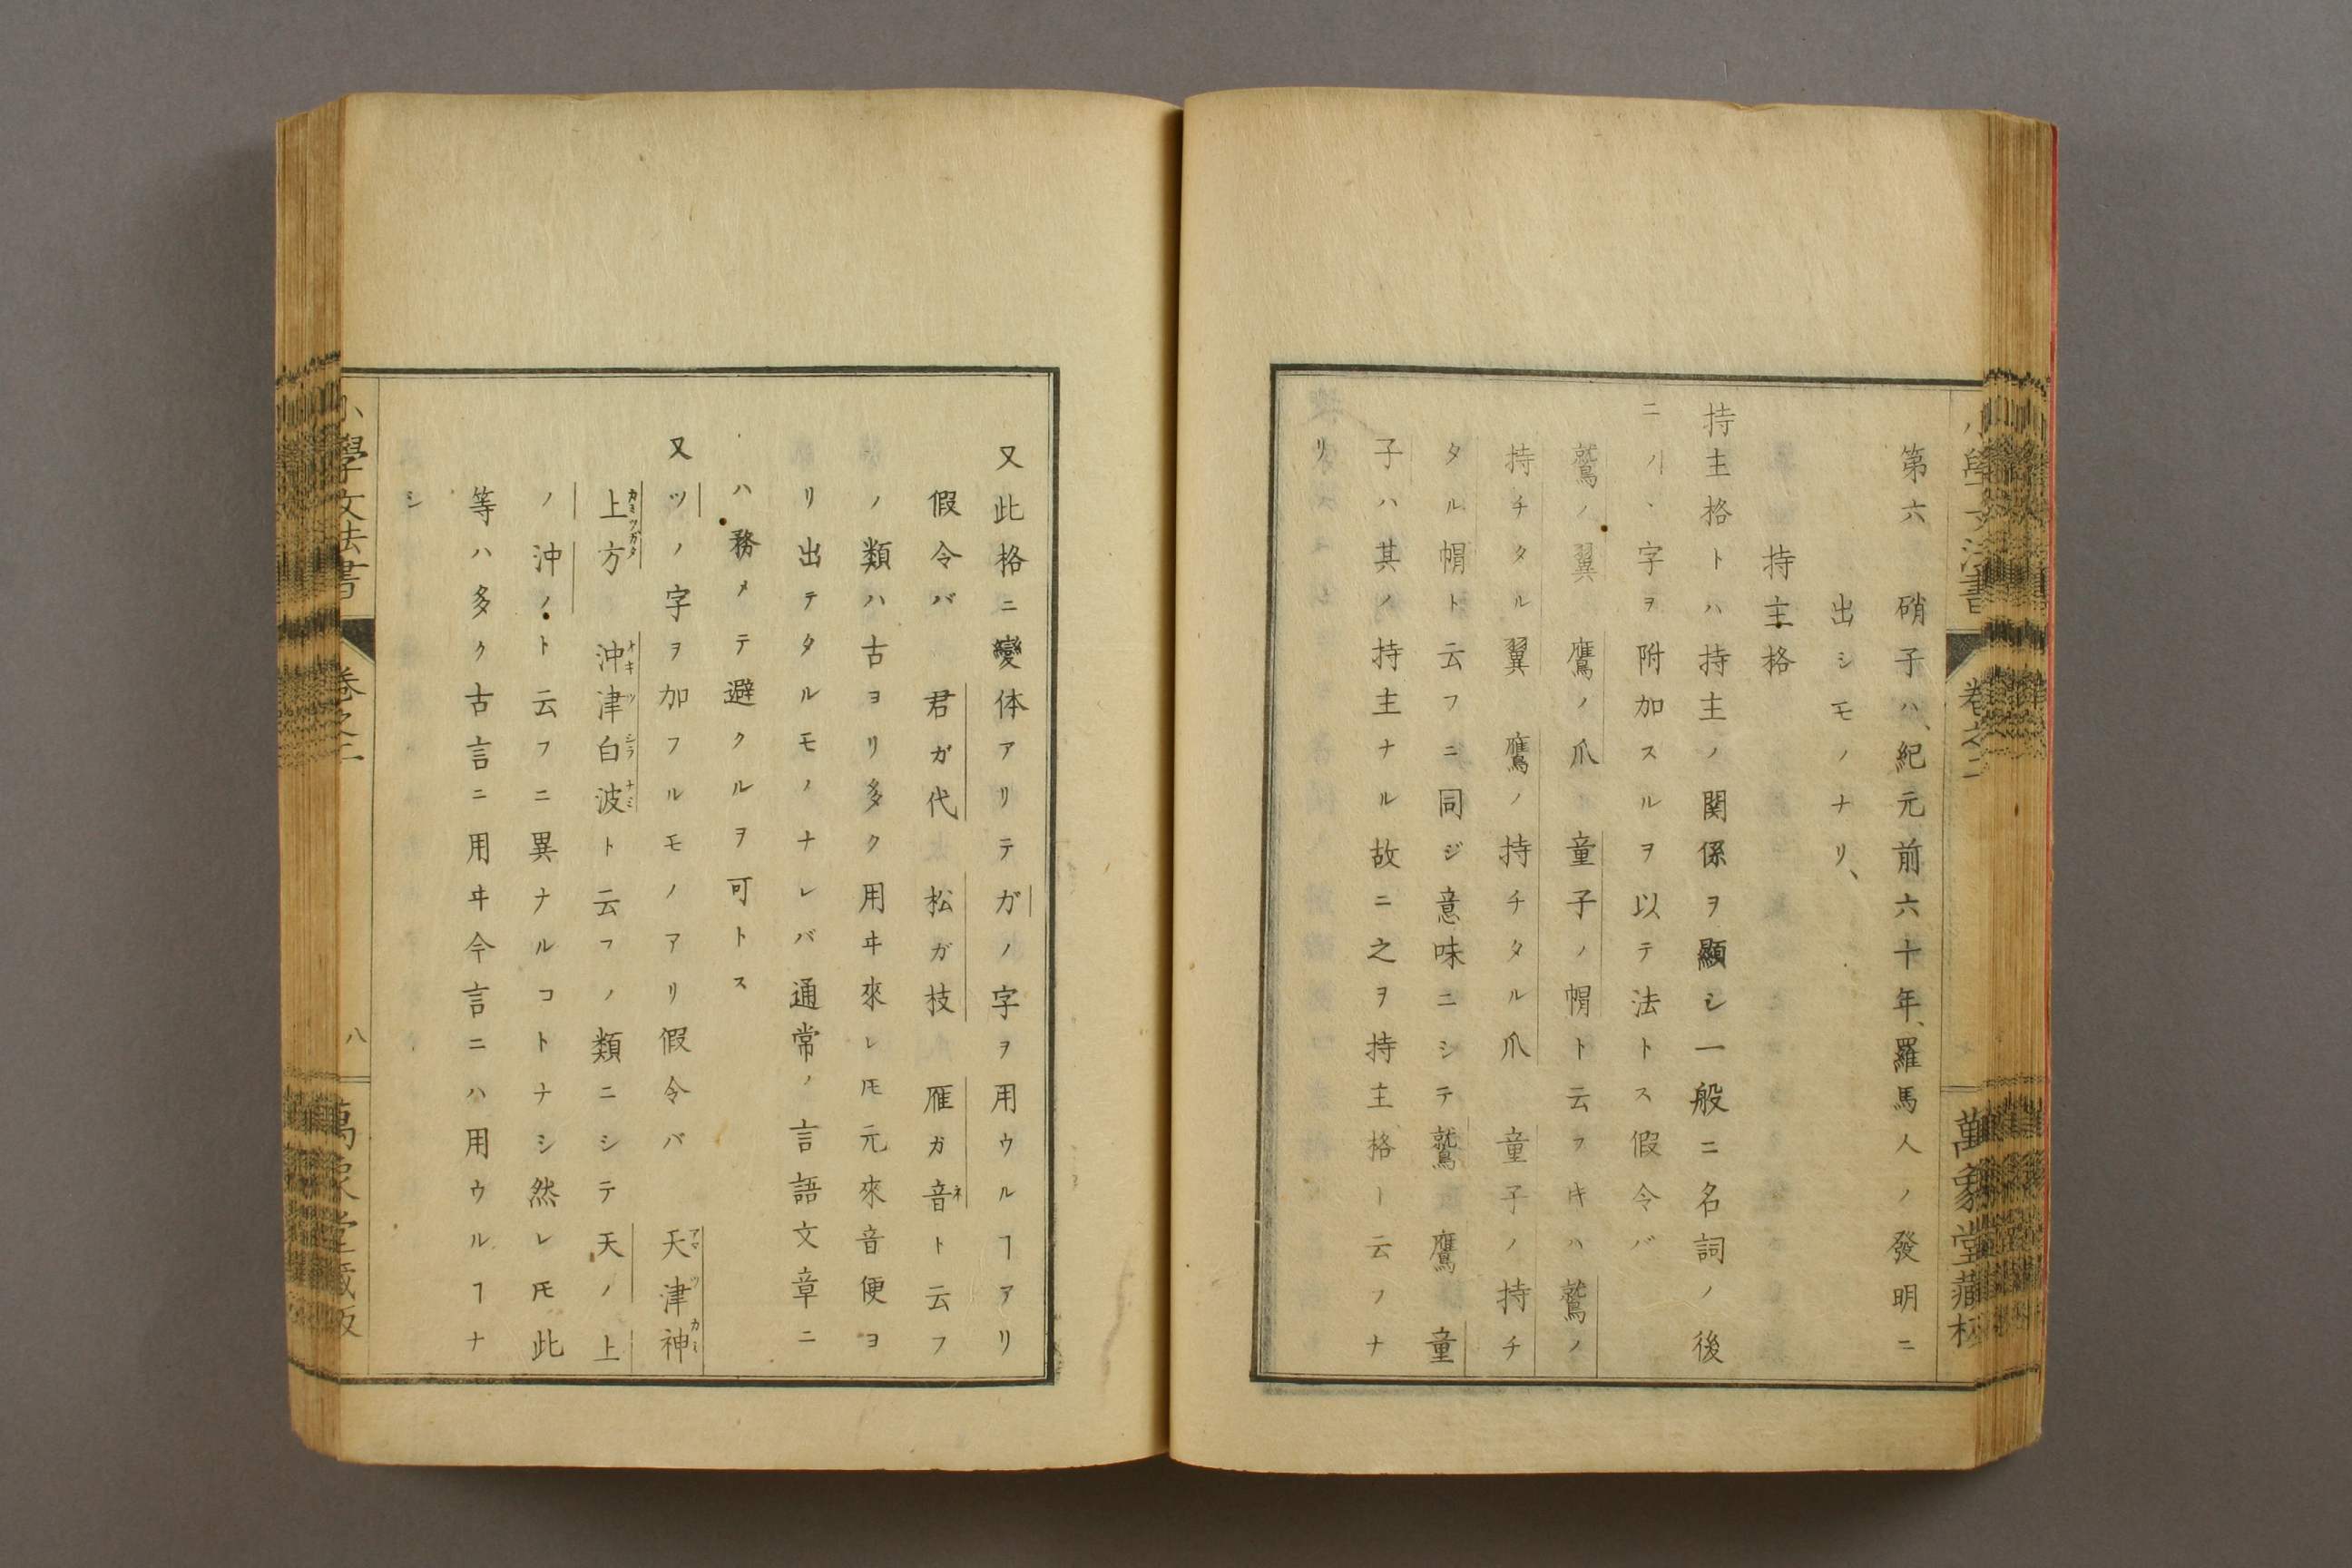 第六　硝子ハ、紀元前六十年、羅馬人ノ發明ニ
出シモノナリ、
持主格
持主格トハ持主ノ関係ヲ顯シ一般ニ名詞ノ後
ニノ、字ヲ附加スルヲ以テ法トス假令バ
鷲ノ翼　鷹ノ爪　童子ノ帽ト云フキハ鷲ノ
持チタル翼　鷹ノ持チタル爪　童子ノ持チ
タル帽ト云フニ同ジ意味ニシテ鷲　鷹　童
子ハ其ノ持主ナル故ニ之ヲ持主格ト云フナ
リ
又此格ニ變体アリテガノ字ヲ用ウルヿアリ
假令バ　君ガ代　松ガ枝　雁ガ音ネト云フ
ノ類ハ古ヨリ多ク用ヰ來レ𪜈元來音便ヨ
リ出テタルモノナレバ通常ノ言語文章ニ
ハ務メテ避クルヲ可トス
又ツノ字ヲ加フルモノアリ假令バ　天津神アマツカミ
上方カミツガタ　沖津白波オキツシラナミト云フノ類ニシテ天ノ　上
ノ　沖ノト云フニ異ナルコトナシ然レ𪜈此
等ハ多ク古言ニ用ヰ今言ニハ用ウルヿナ
シ
小學文法書　卷之二　八　萬象堂蔵版